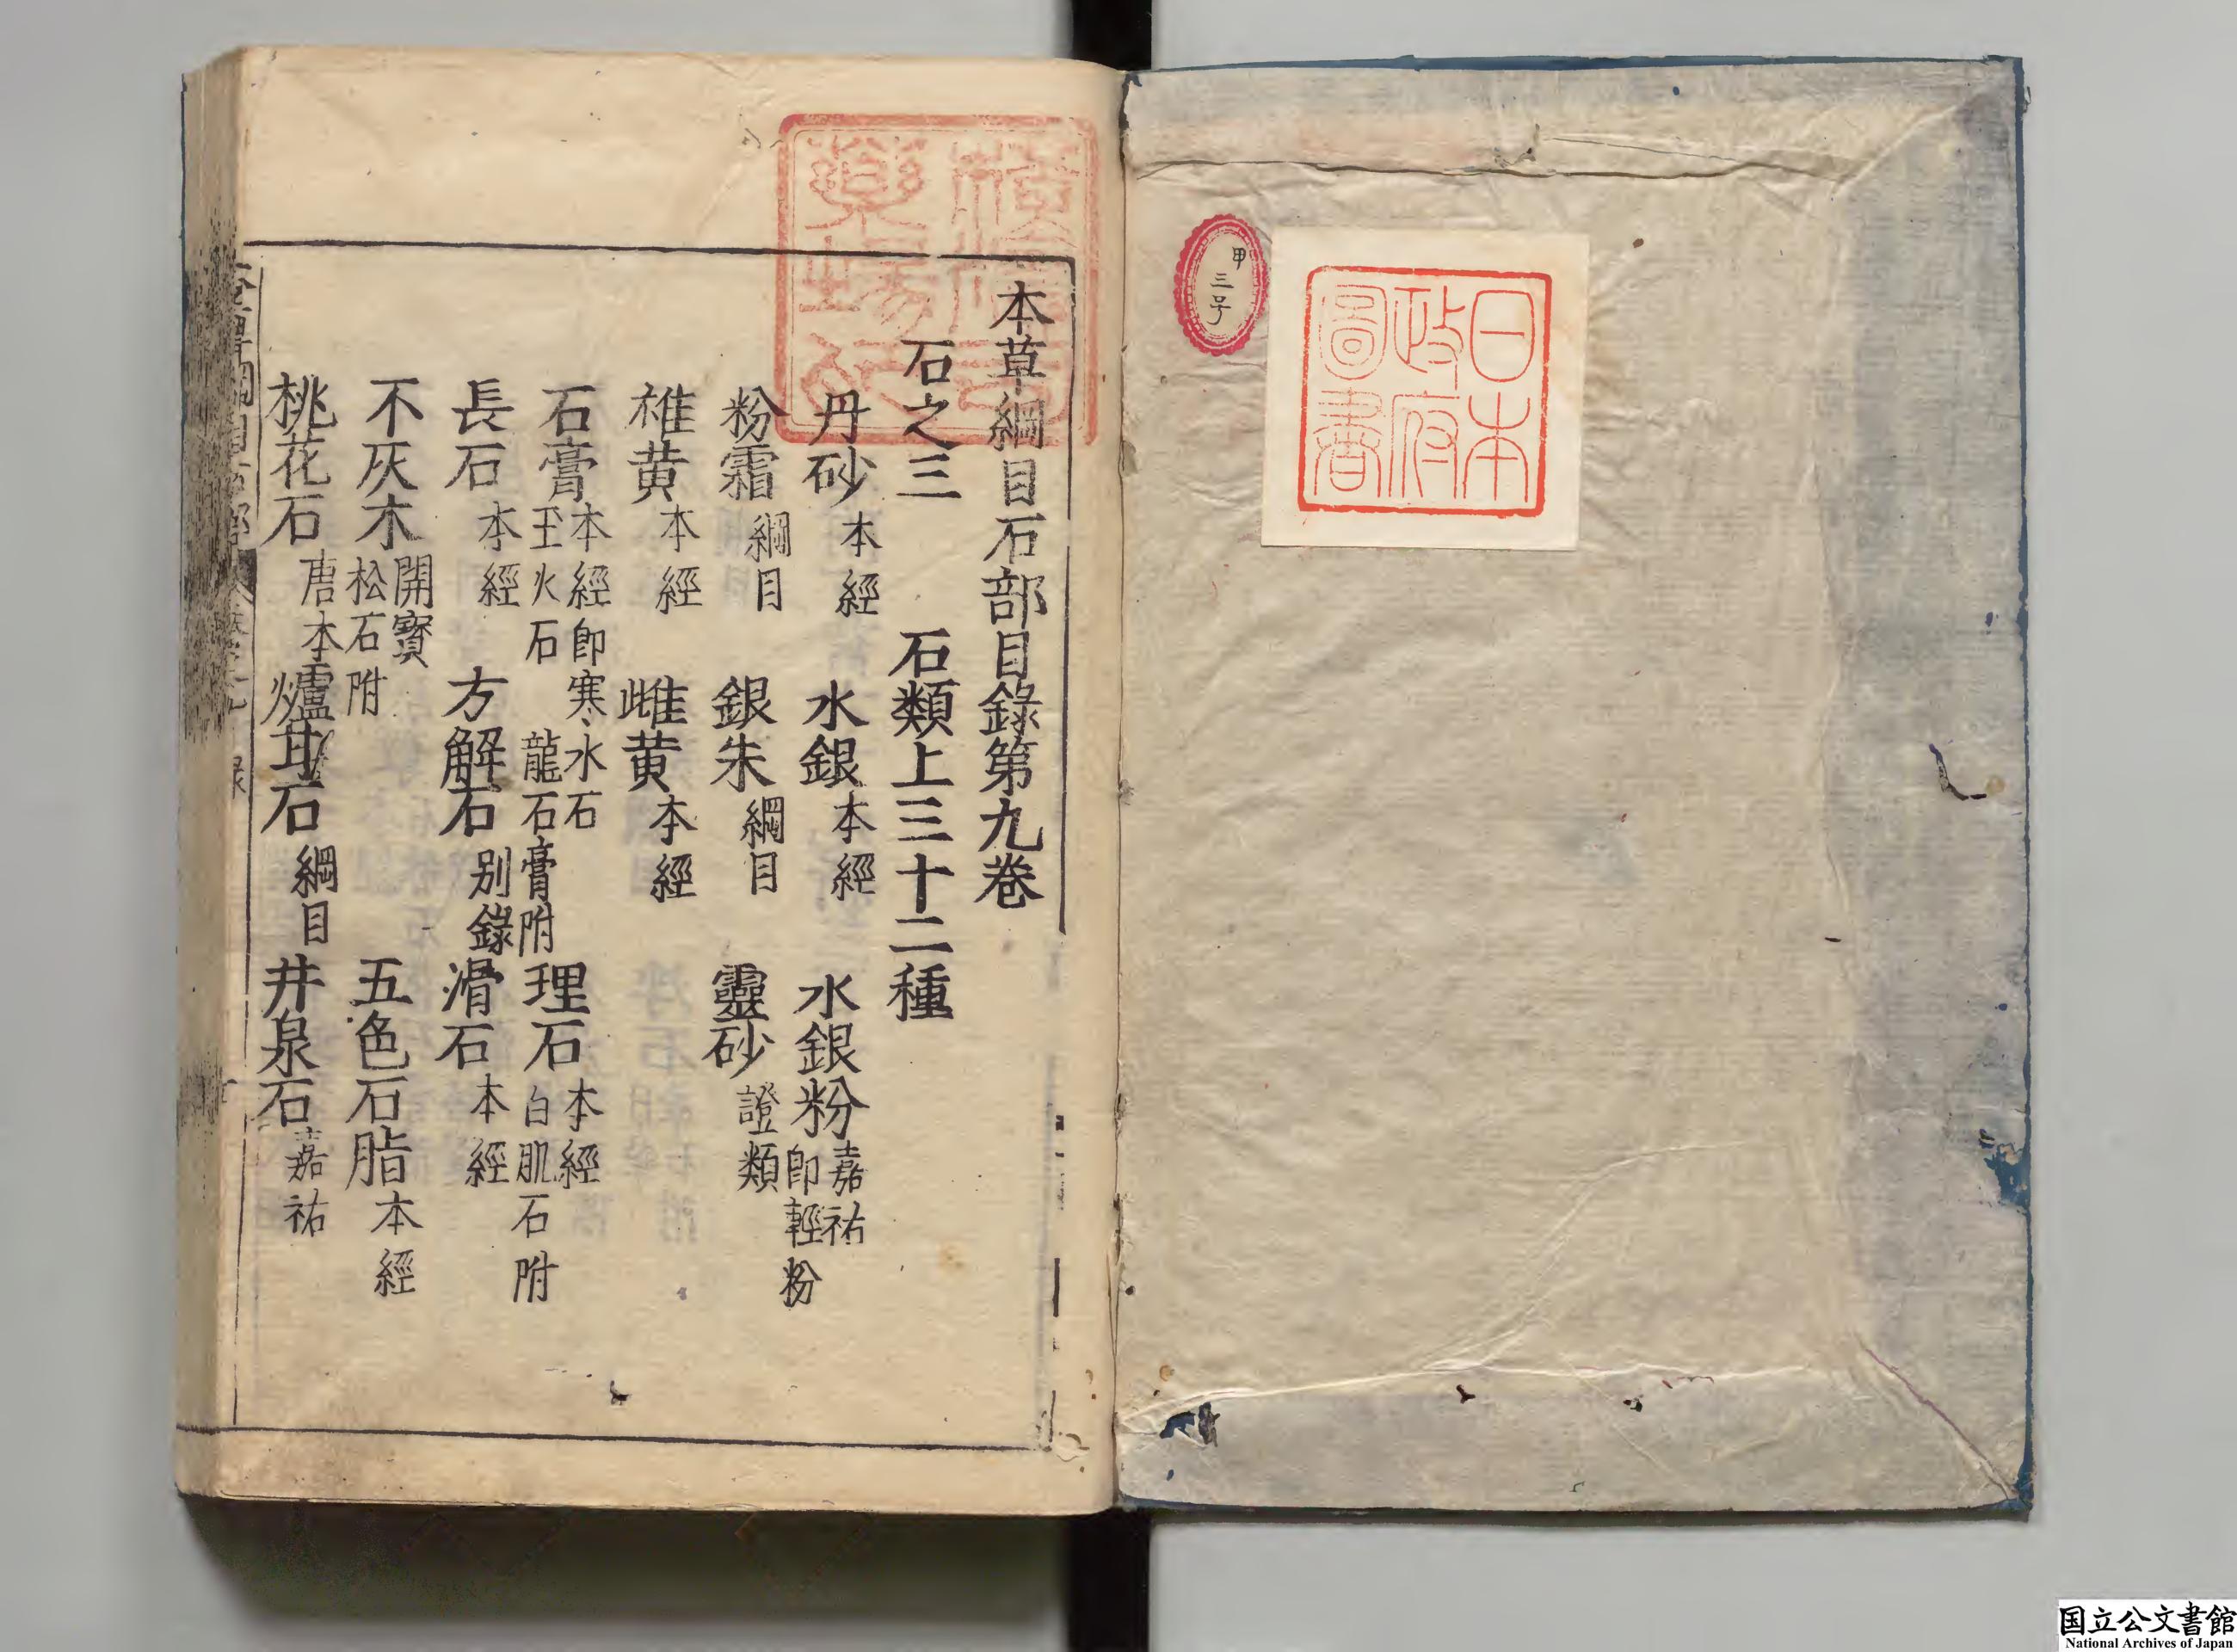 日本
政府
圖書
甲
三子
本草綱目石部目錄第九卷
石之三 石類上三十二種
丹砂本經 水銀本經 水銀粉嘉祐即輕粉
粉霜綱目 銀朱綱目 靈砂證類
雄黄本經 雌黄本經
石膏本經即寒水石玉火石龍石膏附 理石本經白肌石附
長石本經 方解石别錄 滑石本經
不灰木開寶松石附 五色石脂本經
桃花石唐本 爐甘石綱目 井泉石嘉祐
国立公文書館
National Archives of Japan